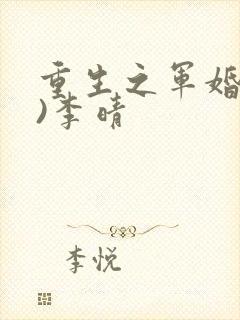 重生之军婚
)李晴
李悦